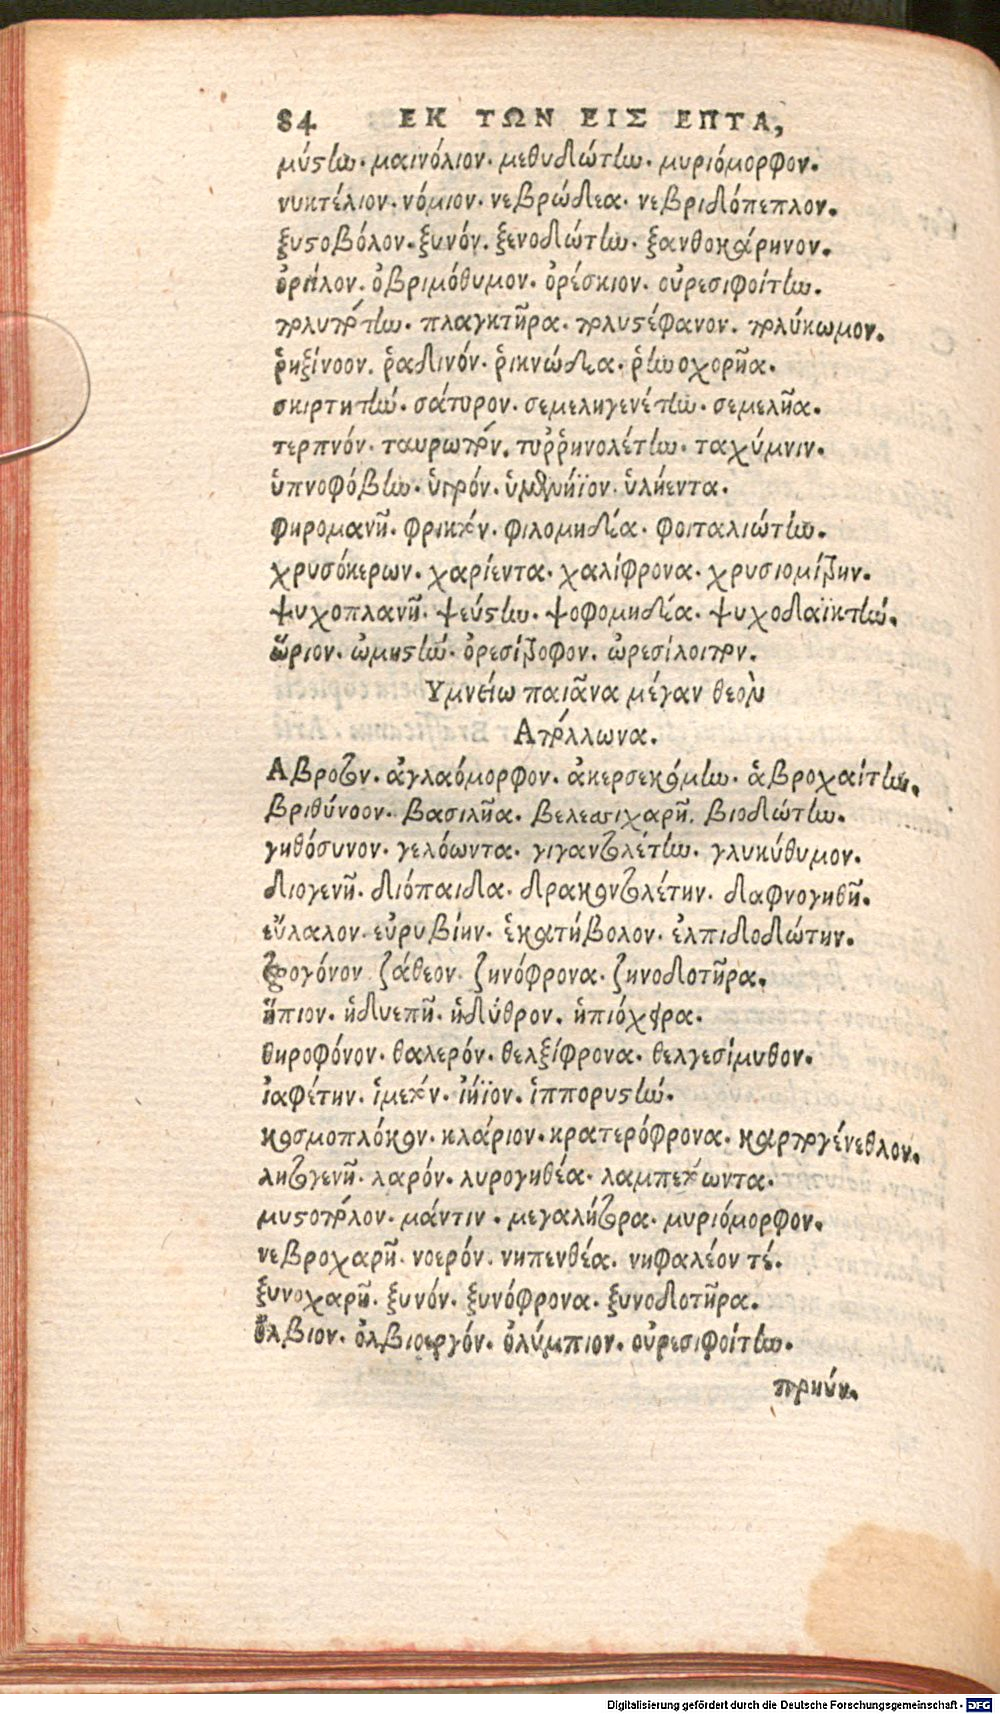 84 ΕΚ ΤΩΝ ΕΙΣ ΕΠΤΑ,
μύστην· μαινόλιον· μεθυδώτην· μυριόμορφον.
νυκτέλιον· νόμιον· νεβρώδεα· νεβριδόπεπλον.
ξυστοβόλον· ξυνόν· ξενοδώτην· ξανθοκάρηνον.
ὀργίλον· ὀβριμόθυμον· ὀρέσκιον· οὐρεσιφοίτην.
πουλυπότην· πλαγκτῆρα· πολυστέφανον· πολύκωμον.
ῥηξίνοον· ῥαδινόν· ῥικνώδεα· ῥηνοχορῆα.
σκιρτητήν· σάτυρον· σεμεληγενέτην· σεμελῆα.
τερπνόν· ταυρωπόν· τυῤῥηνολέτην· ταχύμηνιν.
ὑπνοφόβην· ὑγρόν· ὑμενήϊον· ὑλήεντα.
φηρομανῆ· φρικτόν· φιλομηδέα· φοιταλιώτην.
χρυσόκερων· χαρίεντα· χαλίφρονα· χρυσιομίτρην.
ψυχοπλανῆ· ψεύστην· ψοφομηδέα· ψυχοδαϊκτήν.
ὥριον· ὠμηστήν· ὀρεσίτροφον· ὠρεσίδοιπον.
Υμνείω παιᾶνα μέγαν θεὸν
Απόλλωνα.
Αβροτον· ἀγλαόμορφον· ἀκερσεκόμην· ἁβροχαίτην.
βριθύνοον· βασιλῆα· βελεσσιχαρῆ· βιοδώτην.
γηθόσυνον· γελόωντα· γιγαντολέτην· γλυκύθυμον.
διογενῆ· διόπαιδα· δρακοντολέτην· δαφνογηθῆ.
εὔλαλον· εὐρυβίην· ἑκατήβολον· ἐλπιδοδώτην.
ζωογόνον ζάθεον· ζηνόφρονα· ζηνοδοτῆρα.
ἤπιον· ἡδυεπῆ· ἡδύθρον· ἠπιόχειρα.
θηροφόνον· θαλερόν· θελξίφρονα· θελγεσίμυθον.
ἰαφέτην· ἱμερτόν· ἰήϊον· ἱπποκορυστήν.
κοσμοπλόκον· κλάριον· κρατερόφρονα· καρπογένεθλον.
λητογενῆ· λαρόν· λυρογηθέα· λαμπετόωντα.
μυστιπόλον· μάντιν· μεγαλήτορα· μυριόμορφον.
νεβροχαρῆ· νοερόν· νηπενθέα· νηφαλέον τέ.
ξυνοχαρῆ· ξυνόν· ξυνόφρονα· ξυνοδοτῆρα.
ὄλβιον· ὀλβιοεργόν· ὀλύμπιον· οὐρεσιφοίτην.
πρηύν.
Digitalisierung gefördert durch die Deutsche Forschungsgemeinschaft - DFG